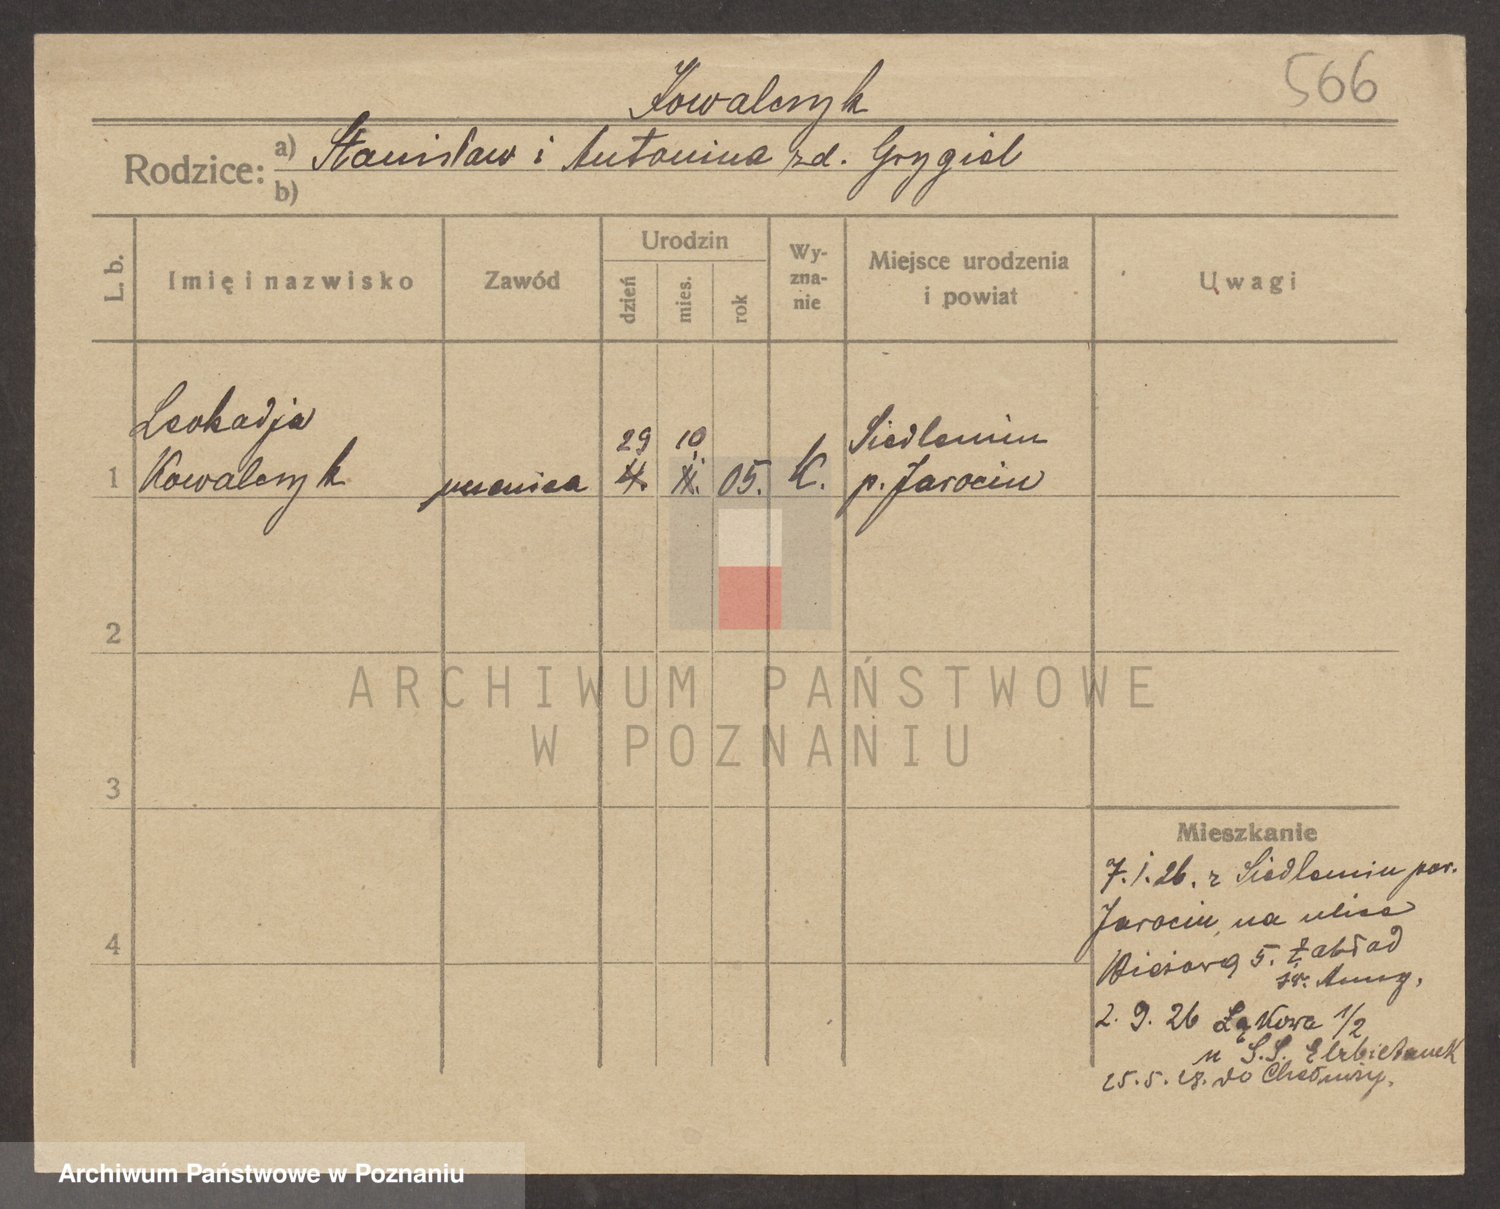 566
Kowalczyk
Rodzice: a) Stanisław i Antonina zd. Grygiel
b)
L. b.
Imię i nazwisko
Zawód
Urodzin
dzień
mies.
rok
Wy-
zna-
nie
Miejsce urodzenia
i powiat
Uwagi
Leokadja
29 10
Siedlemin
1 Kowalczyk uczenica 4. X. 05. K. p. Jarocin
2
ARCHIWUM PAŃSTWOWE
W POZNANIU
3
Mieszkanie
7.1.26. z Siedlemin pow.
Jarocin, na ulice
4
5. Zakład
św. Anny.
2. 9. 26 Łąkowa 1/2
u S.S. Elżbietanek
25.5.28. do Chełmży.
Archiwum Państwowe w Poznaniu